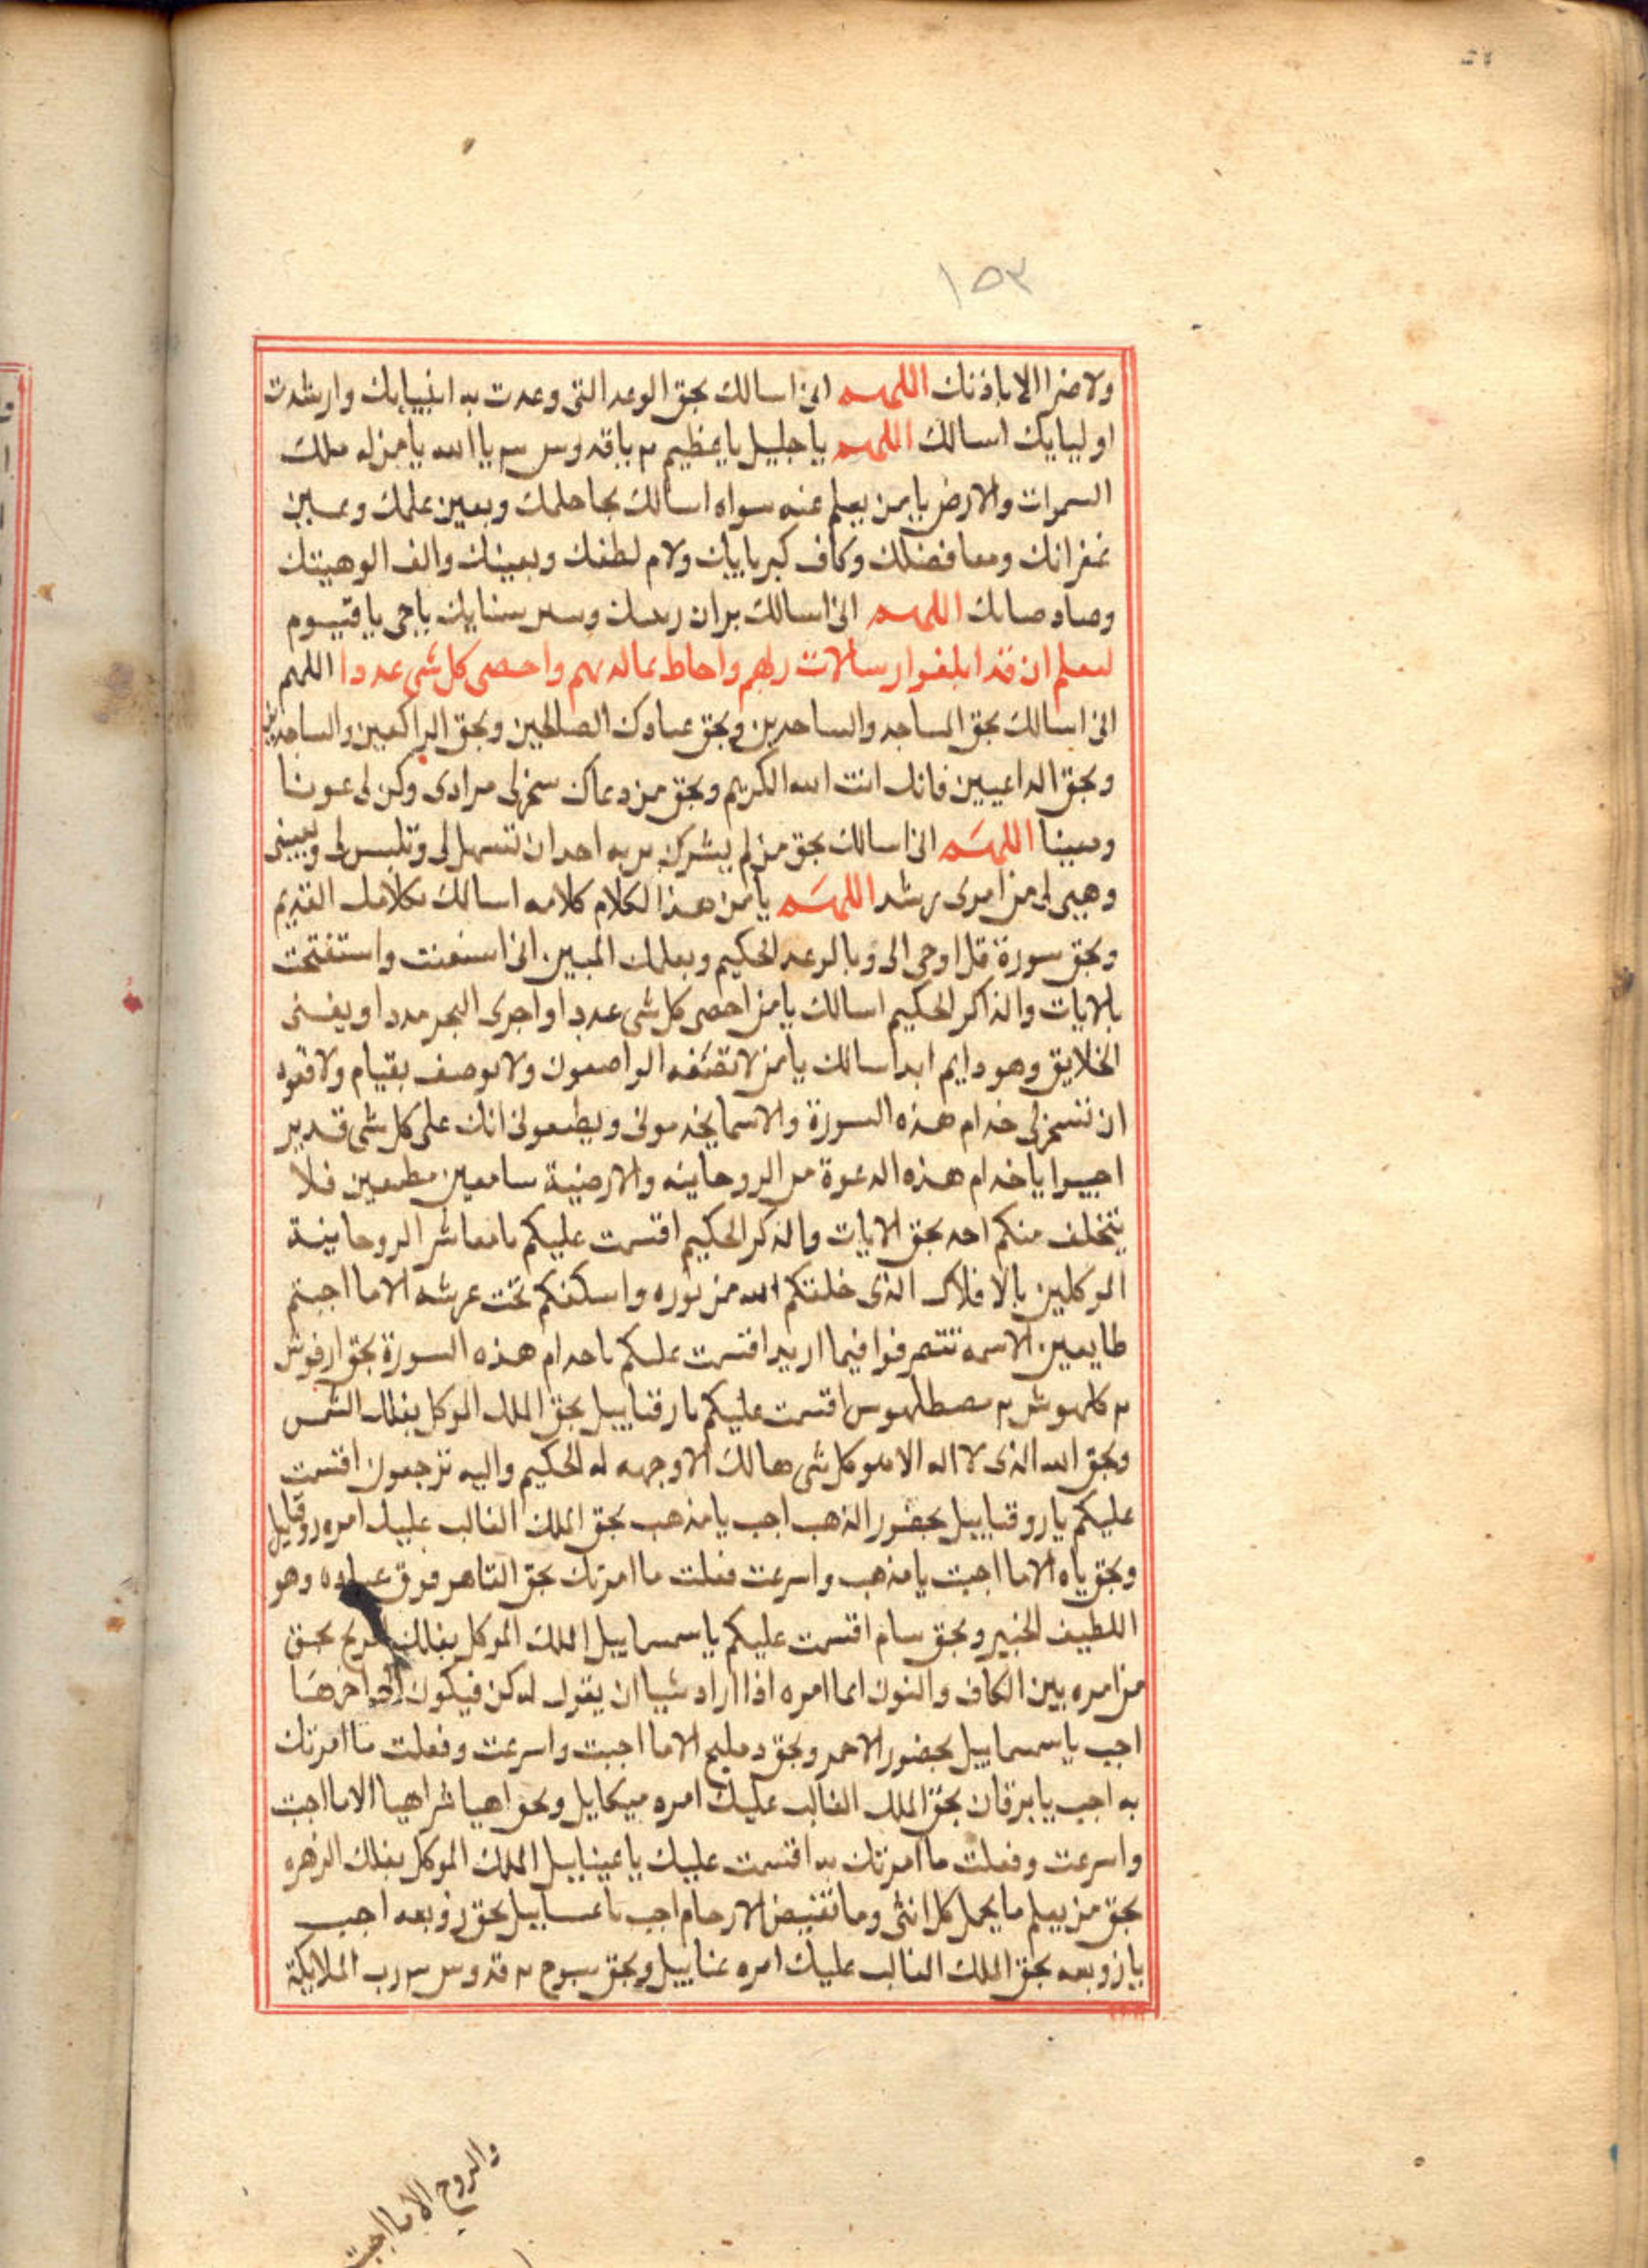 ١٥٣
ولا ضرا الا باذنك اللهم انى اسالك بحق الوعد التى وعدت به انبيايك وارشدت
اوليايك اسالك اللهم يا جليل يا عظيم م يا قدوس م يا الله يا من له ملك
السموات والارض يا من يعلم عنه سواه اسالك بحا حلمك وبعين علمك وعـين
غفرانك ومعا فضلك وكاف كبريايك ولام لطفك وبعينك والف الوهيتك
وصاد اللهم انى اسالك وسر سنايك يا حى يا قيوم
ليعلم ان قد ابلغوا رسالات ربهم واحاط بما لديهم واحصى كل شى عددا اللهم
انى اسالك بحق المساجد والساجدين وبحق عبادك الصالحين وبحق الراكعين والساجدين
وبحق الداعيين فانك انت الله الكريم وبحق من دعاك سخر لى مرادى وكن لى عونا
ومعينا اللهم انى اسالك بحق من لم يشرك بربه احد ان تسهل لى وتلبس لى
وهيى لى من امرى رشد اللهم يا من هذا الكلام كلامه اسالك بكلامك القديم
وبحق سورة قل اوحى الى وبالوعد الحكيم وبعلمك المبين انى استعنت واستفتحت
بالايات والذاكر الحكيم اسالك يا من احصى كل شى عددا واجرى البحر مددا ويفنى
الخلايق وهو دايم ابد اسالك يا من لا تصفه الواصفون ولا يوصف بقيام ولا قعود
ان تسخر لى خدام هذه السورة والاسما يخدمونى ويطيعونى انك على كل شى قدير
اجيبوا يا خدام هذه الدعوة من الروحاينه والارضية سامعين مطيعين فلا
يتخلف منكم احد بحق الايات والذكر الحكيم اقسمت عليكم يا معاشر الروحاينة
الموكلين بالافلاك الذى خلقكم الله من نوره واسكنكم تحت عرشه الا ما اجبتم
طايعين الاسمه تتصرفوا فيما اريد اقسمت عليكم يا خدام هذه السورة بحق ارفوش
م كلهوش م مصطلهوس اقسمت عليكم يا رقياييل بحق الملك الموكل بفلك الشمس
وبحق الله الذى لا اله الا هو كل شى هالك الا وجهه له الحكيم واليه ترجعون اقسمت
عليكم يا روقياييل بحضور الذهب اجب يا مذهب بحق الملك الغالب عليك امره روقيايل
وبحق ياه الا ما اجبت يا مذهب واسرعت فعلت ما امرتك بحق القاهر فوق عباده وهو
اللطيف الخبير وبحق سام اقسمت عليكم يا سمسماييل الملك الموكل بفلك المريخ بحق
من امره بين الكاف والنون انما امره اذا اراد شيا ان يقول له كن فيكون الى اخرها
اجب يا سمسماييل بحضور الاحمر وبحق دمليخ الا ما اجبت واسرعت وفعلت ما امرتك
به اجب يا برقان بحق الملك الغالب عليك امره ميكايل وبحق اهيا شراهيا الا ما اجبت
واسرعت وفعلت ما امرتك به اقسمت عليك يا عيناييل الملك الموكل بفلك الزهره
بحق من يعلم ما يحمل كل انثى وما تغيض الارحام اجب يا عـاييل بحق زوبعه اجب
يا زوبعه بحق الملك الغالب عليك امره عناييل وبحق سبوح م قدوس م رب الملايكة
والروح الا ما اجبت